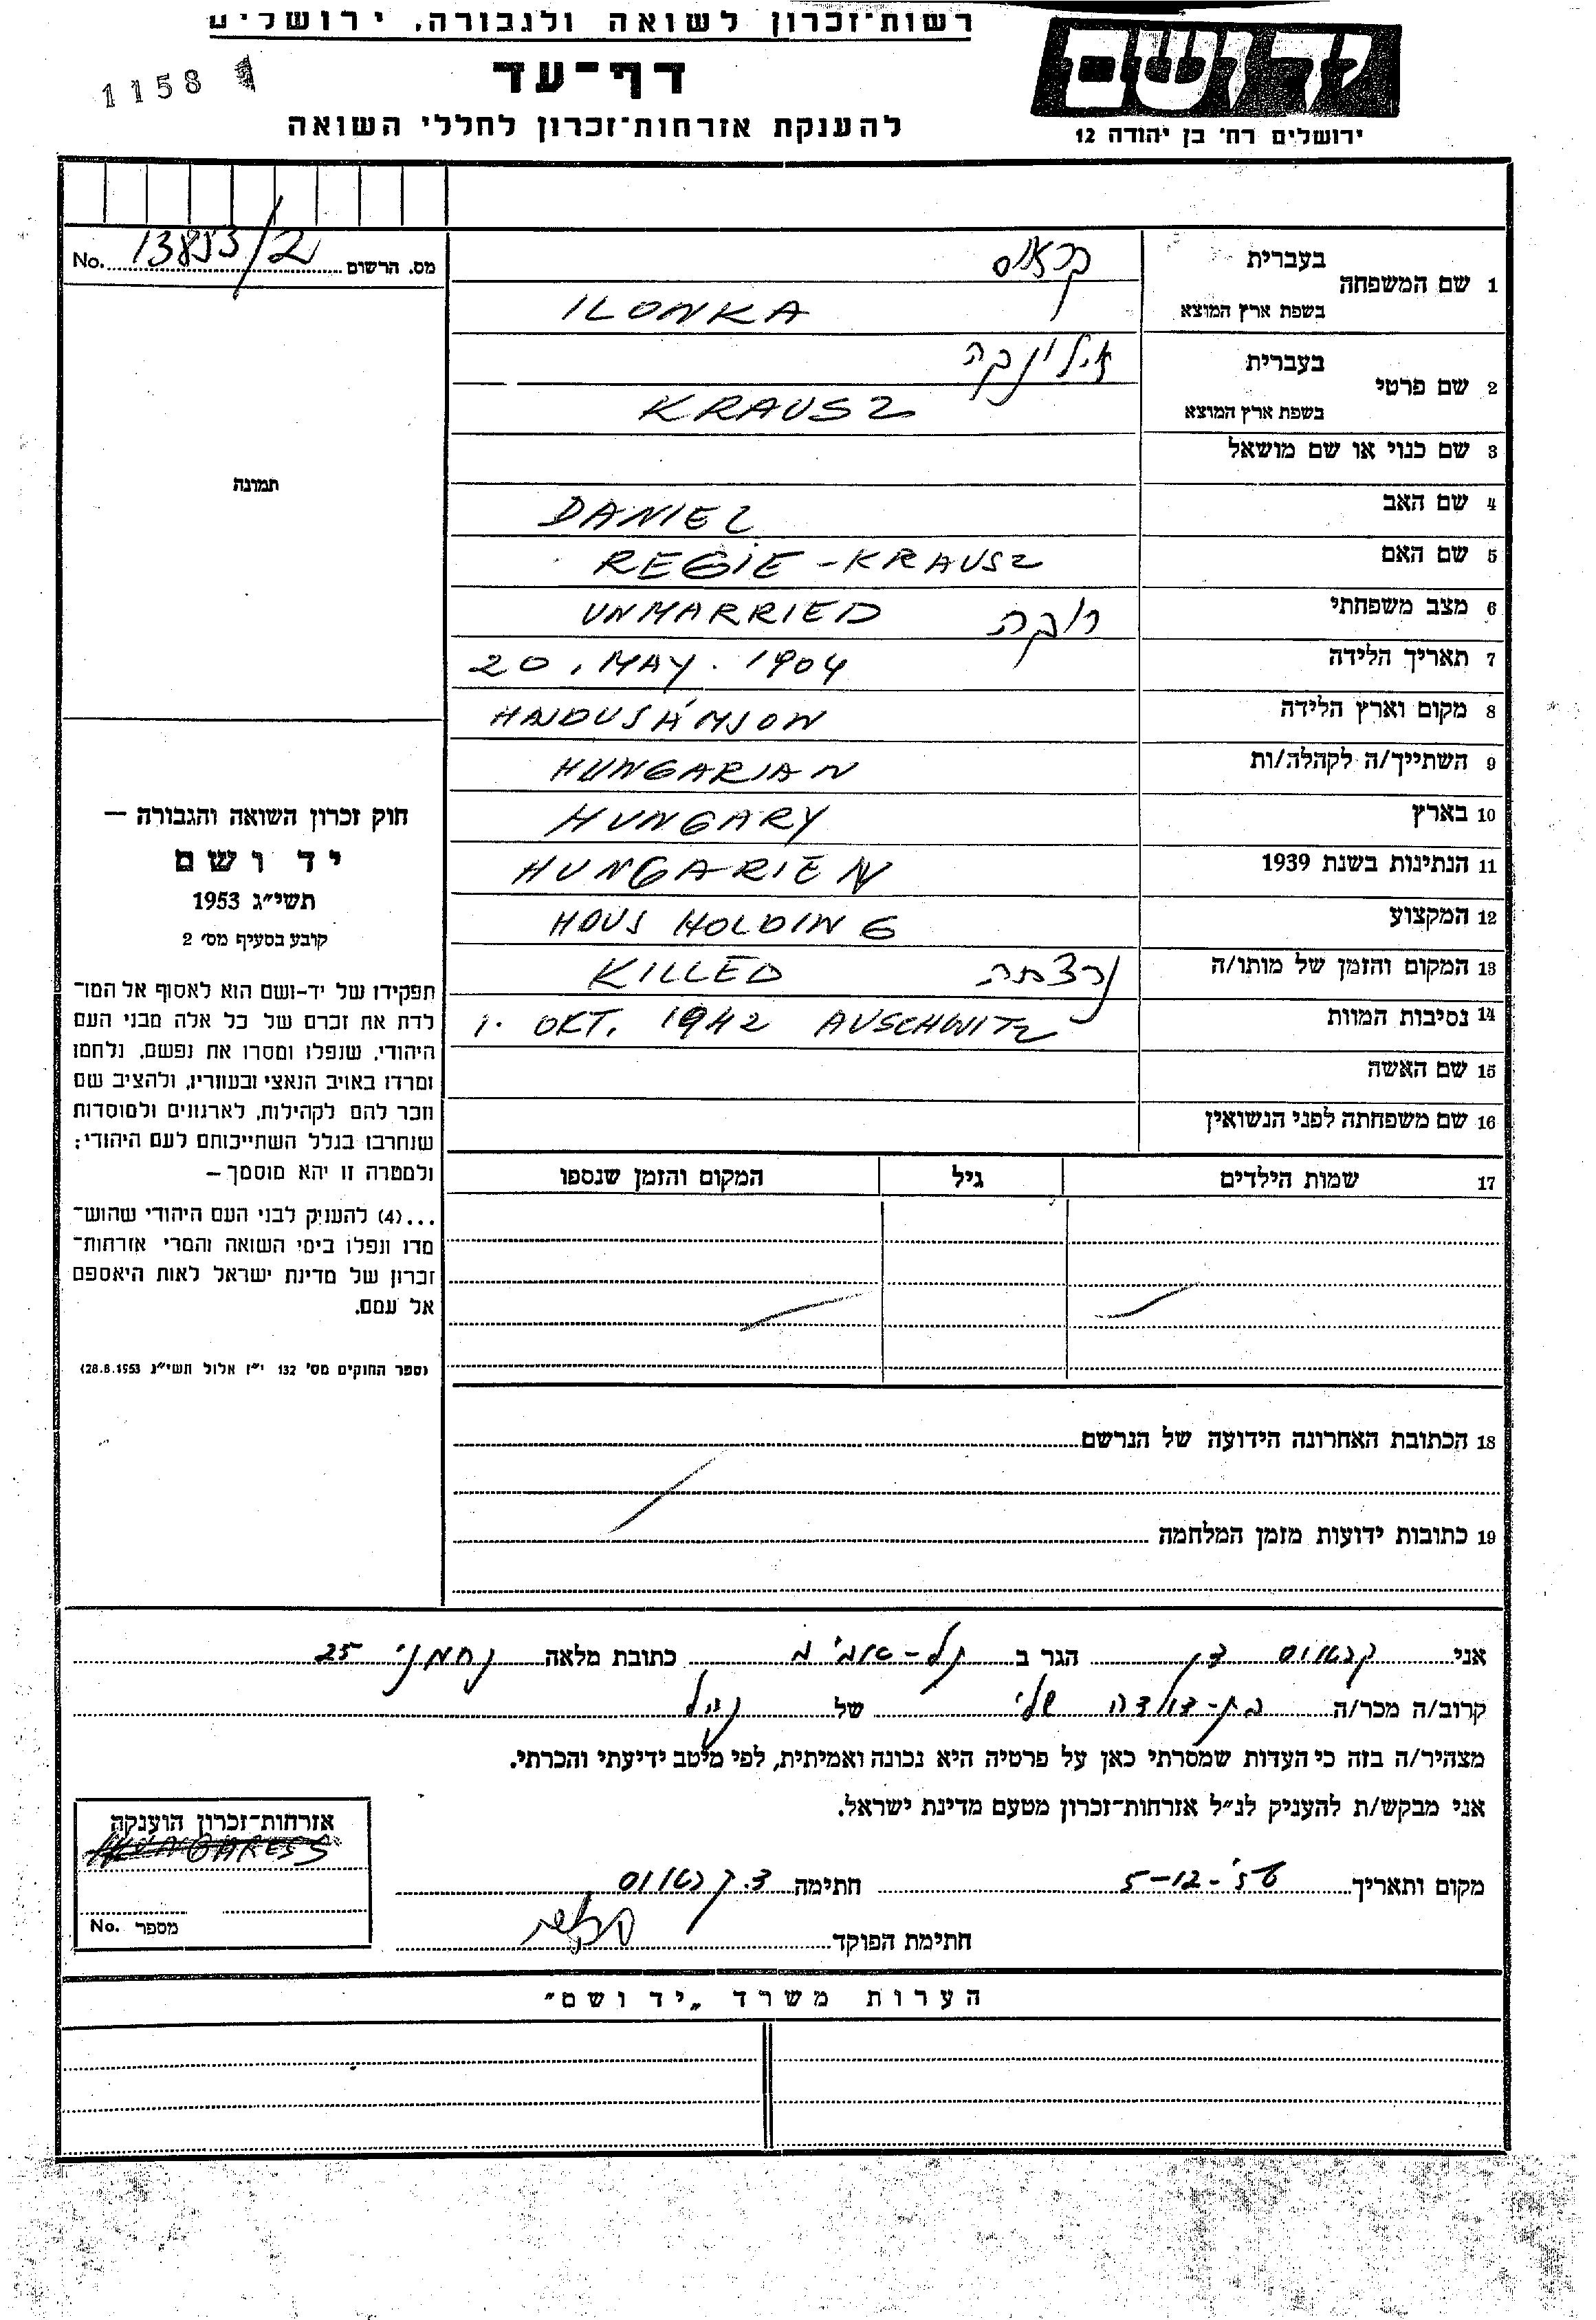 רשות־זכרון לשואה ולגבורה, ירושלים
יד ושם
1158
דף־עד
להענקת אזרחות־זכרון לחללי השואה
ירושלים רח' בן יהודה 12
מס. הרשום 13853/2 No.
1 שם המשפחה
בעברית קראוס
בשפת ארץ המוצא ILONKA
2 שם פרטי
בעברית אילונקה
בשפת ארץ המוצא KRAUSZ
3 שם כנוי או שם מושאל
4 שם האב DANIEL
5 שם האם REGIE - KRAUSZ
6 מצב משפחתי רוקה UNMARRIED
7 תאריך הלידה 20. MAY. 1904
8 מקום וארץ הלידה HAJDUSÁMSON
9 השתייך/ה לקהלה/ות HUNGARIAN
10 בארץ HUNGARY
11 הנתינות בשנת 1939 HUNGARIEN
12 המקצוע HOUS HOLDING
13 המקום והזמן של מותו/ה נרצחה KILLED
14 נסיבות המוות 1. OKT. 1942 AUSCHWITZ
15 שם האשה
16 שם משפחתה לפני הנשואין
17 שמות הילדים גיל המקום והזמן שנספו
18 הכתובת האחרונה הידועה של הנרשם
19 כתובות ידועות מזמן המלחמה
תמונה
חוק זכרון השואה והגבורה —
יד ושם
תשי״ג 1953
קובע בסעיף מס׳ 2
תפקידו של יד–ושם הוא לאסוף אל המו־
לדת את זכרם של כל אלה מבני העם
היהודי, שנפלו ומסרו את נפשם, נלחמו
ומרדו באויב הנאצי ובעוזריו, ולהציב שם
וזכר להם לקהילות, לארגונים ולמוסדות
שנחרבו בגלל השתייכותם לעם היהודי;
ולמטרה זו יהא מוסמך —
...(4) להעניק לבני העם היהודי שהוש־
מדו ונפלו בימי השואה והמרי אזרחות־
זכרון של מדינת ישראל לאות היאספם
אל עמם.
(ספר החוקים מס׳ 132 י״ז אלול תשי״ג 28.8.1953)
אני קראוס הגר ב תל-אביב כתובת מלאה נחמני 25
קרוב/ה מכר/ה בת-דודה שלי של הנ״ל
מצהיר/ה בזה כי העדות שמסרתי כאן על פרטיה היא נכונה ואמיתית, לפי מיטב ידיעתי והכרתי.
אני מבקש/ת להעניק לנ״ל אזרחות־זכרון מטעם מדינת ישראל.
מקום ותאריך 5-12- חתימה קראוס
חתימת הפוקד
אזרחות־זכרון הוענקה
מספר No.
הערות משרד „יד ושם״